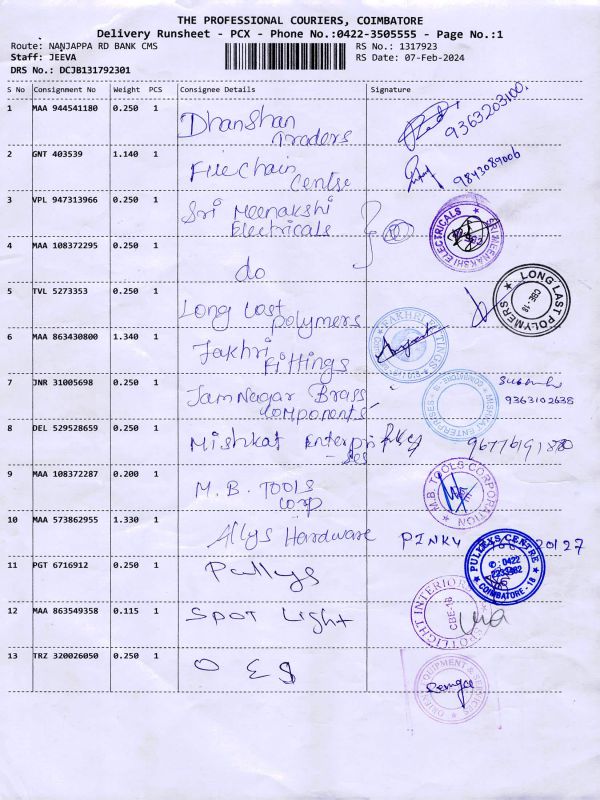 THE PROFESSIONAL COURIERS, COIMBATORE
Delivery Runsheet - PCX - Phone No.:0422-3505555 - Page No.:1
Route: NANJAPPA RD BANK CMS RS No.: 1317923
Staff: JEEVA RS Date: 07-Feb-2024
DRS No.: DCJB131792301
S No Consignment No Weight PCS Consignee Details Signature
1 MAA 944541180 0.250 1 Dhanshan 9363203100
Traders
2 GNT 403539 1.140 1 FireChain 9843089006
Centre
3 VPL 947313966 0.250 1 Sri Meenakshi
Electricals
SRI MEENAKSHI ELECTRICALS
4 MAA 108372295 0.250 1 do
5 TVL 5273353 0.250 1 Long Last
Polymers
LONG LAST POLYMERS
CBE - 18
6 MAA 863430800 1.340 1 Fakhri
Fittings
FAKHRI FITTINGS
7 JNR 31005698 0.250 1 Jamnagar Brass
components
9363102635
8 DEL 529528659 0.250 1 Mishkat Enterpri
-ses
MISHKAT ENTERPRISES
9 MAA 108372287 0.200 1 M.B. TOOLS
Corp
M.B. TOOLS CORPORATION
10 MAA 573862955 1.330 1 Allys Hardware PINKY 20127
11 PGT 6716912 0.250 1 Pullys
PULLEYS CENTRE
✆: 0422
COIMBATORE - 18
12 MAA 863549358 0.115 1 SPOT Light
SPOTLIGHT INTERIORS
CBE-18
13 TRZ 320026050 0.250 1 O E S
ORIENT EQUIPMENT & SERVICES